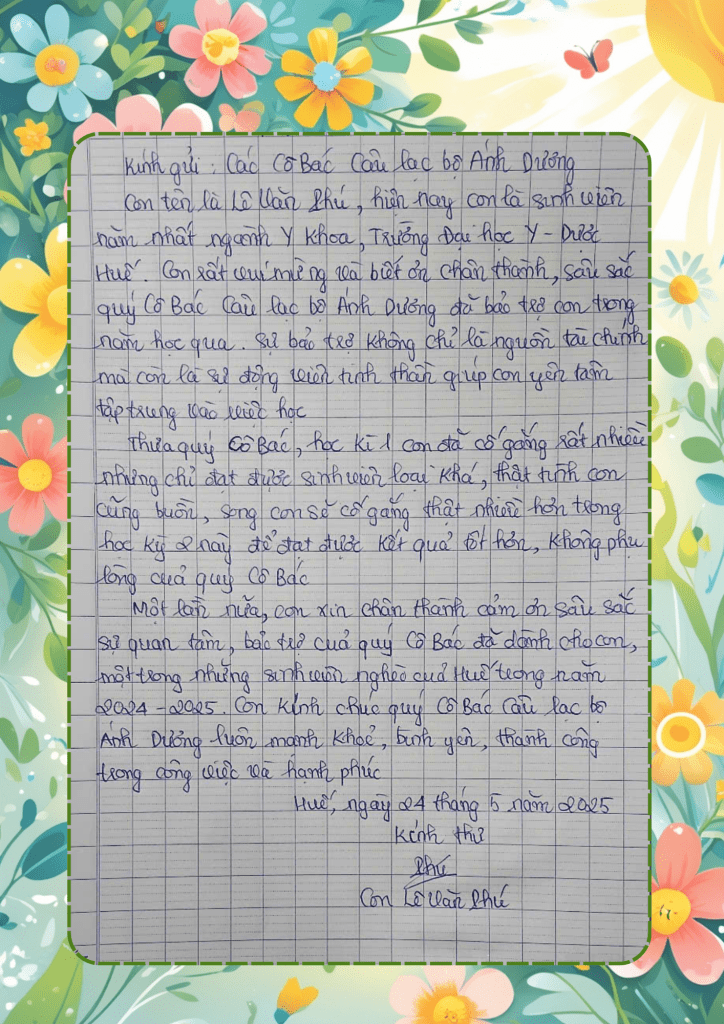 Kính gửi : Các Cô Bác Câu lạc bộ Ánh Dương
Con tên là Lê Văn Phú, hiện nay con là sinh viên
năm nhất ngành Y khoa, Trường Đại học Y - Dược
Huế. Con rất vui mừng và biết ơn chân thành, sâu sắc
quý Cô Bác Câu lạc bộ Ánh Dương đã bảo trợ con trong
năm học qua. Sự bảo trợ không chỉ là nguồn tài chính
mà còn là sự động viên tinh thần giúp con yên tâm
tập trung vào việc học
Thưa quý Cô Bác, học kì 1 con đã cố gắng rất nhiều
nhưng chỉ đạt được sinh viên loại Khá, thật tình con
cũng buồn, song con sẽ cố gắng thật nhiều hơn trong
học kỳ 2 này để đạt được kết quả tốt hơn, không phụ
lòng của quý Cô Bác
Một lần nữa, con xin chân thành cảm ơn sâu sắc
sự quan tâm, bảo trợ của quý Cô Bác đã dành cho con,
một trong những sinh viên nghèo của Huế trong năm
2024 - 2025. Con kính chúc quý Cô Bác Câu lạc bộ
Ánh Dương luôn mạnh khoẻ, bình yên, thành công
trong công việc và hạnh phúc
Huế, ngày 24 tháng 5 năm 2025
Kính thư
Phú
Con Lê Văn Phú